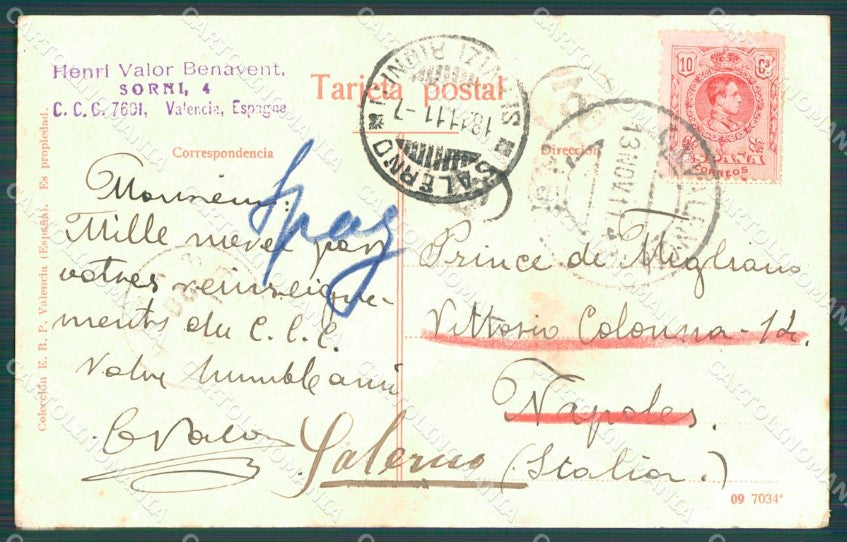 Henri Valor Benavent,
SORNI, 4
C. C. C. 7601, Valencia, Espagne
Tarjeta postal
SALERNO
18.11.11-7
Correspondencia
Dirección
13 NOV. 11
VALENCIA
10 Cs
ESPAÑA
CORREOS
Monsieur:
Mille merci par
votres renseigne-
ments du C.C.C.
Votre humble ami
EValor
Spag
Prince de Migliano
Vittorio Colonna - 12.
Napoles.
Salerno (Italia.)
Colección E. B. P. Valencia (España). Es propiedad.
09 7034*
CARTOLINOMANIA